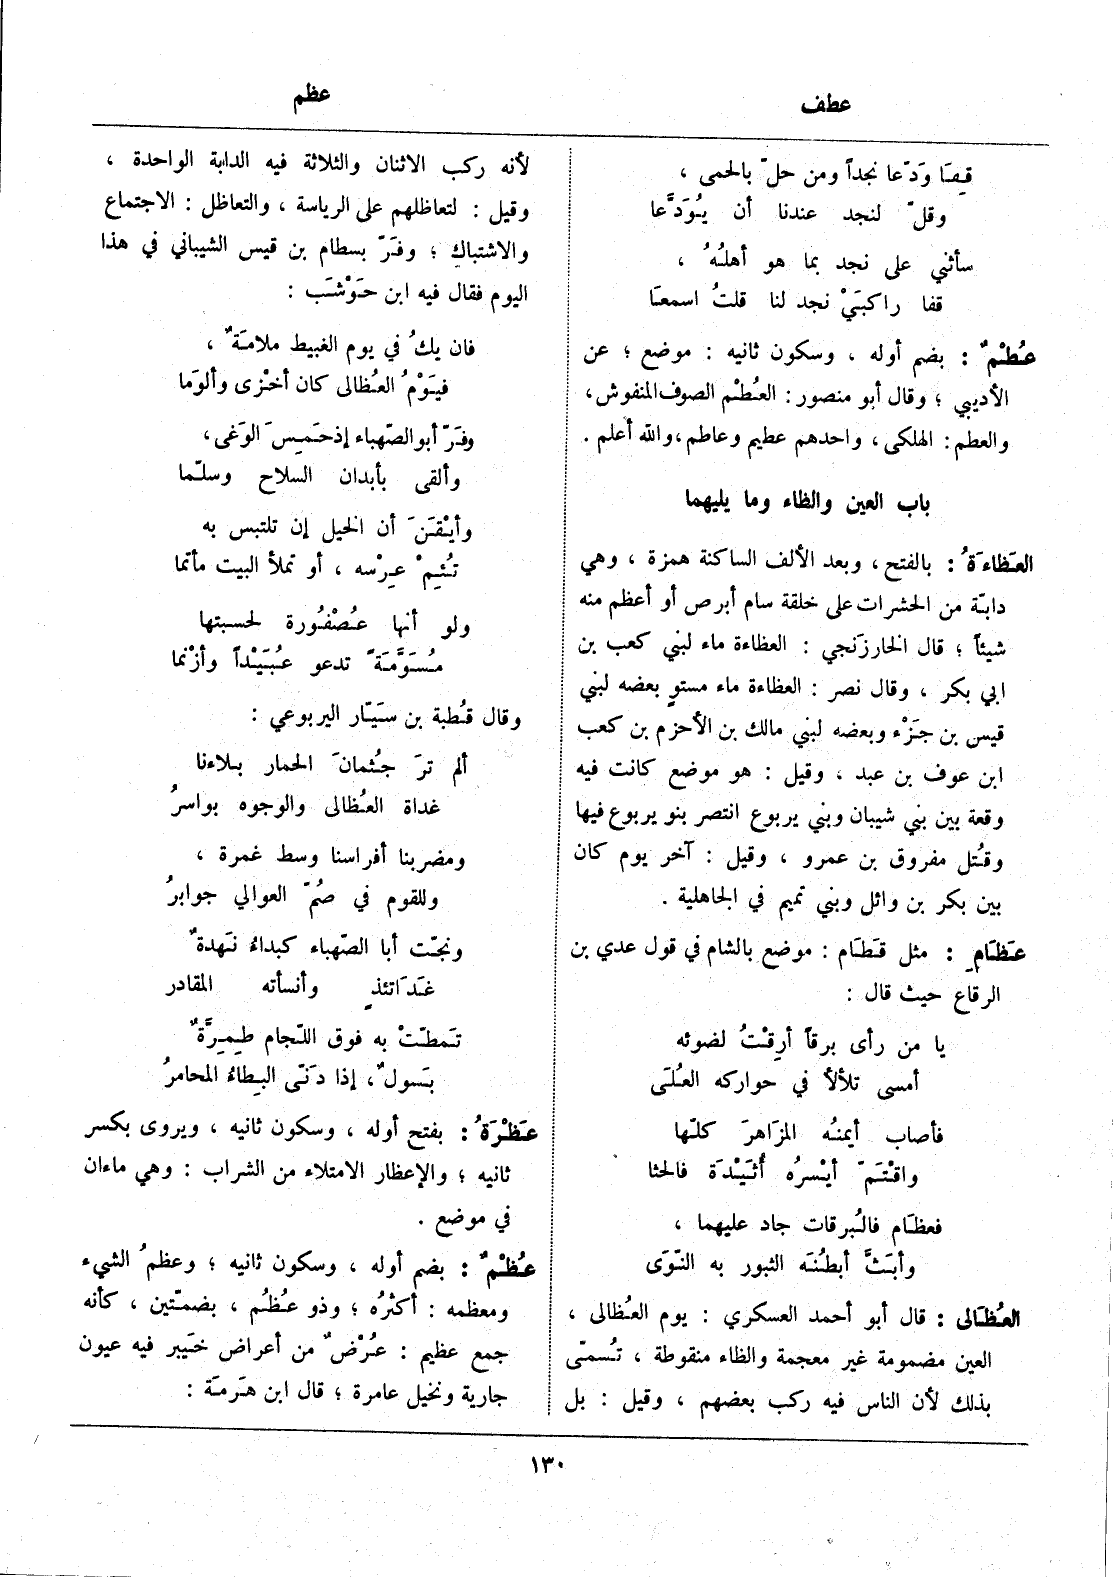 عطف
عظم
قِفَا وَدّعا نجداً ومن حلّ بالحمى ،
وقلّ لنجد عندنا أن يُوَدَّعا
سأثني على نجد بما هو أهلُهُ ،
قفا راكبَيْ نجد لنا قلتُ اسمعَا
عُطْمٌ : بضم أوله ، وسكون ثانيه : موضع ؛ عن
الأديبي ؛ وقال أبو منصور : العُطْم الصوف المنفوش ،
والعطم : الهلكى ، واحدهم عطيم وعاطم ، والله أعلم .
باب العين والظاء وما يليهما
العَظاءَةُ : بالفتح ، وبعد الألف الساكنة همزة ، وهي
دابّة من الحشرات على خلقة سام أبرص أو أعظم منه
شيئاً ؛ قال الخارزَنجي : العظاءة ماء لبني كعب بن
ابي بكر ، وقال نصر : العظاءة ماء مستوٍ بعضه لبني
قيس بن جَزْء وبعضه لبني مالك بن الأحزم بن كعب
ابن عوف بن عبد ، وقيل : هو موضع كانت فيه
وقعة بين بني شيبان وبني يربوع انتصر بنو يربوع فيها
وقُتل مفروق بن عمرو ، وقيل : آخر يوم كان
بين بكر بن وائل وبني تميم في الجاهلية .
عَظَامِ : مثل قَطَام : موضع بالشام في قول عدي بن
الرقاع حيث قال :
يا من رأى برقاً أرِقْتُ لضوئه
أمسى تلألأ في حواركه العُلَى
فأصاب أيمنُه المزَاهرَ كلّها
واقْتَمّ أيْسرُه أُثَيْدَة فالحثا
فعظَام فالبُرقات جاد عليهما ،
وأبَثَّ أبطُنَه الثبور به النّوَى
العُظَالى : قال أبو أحمد العسكري : يوم العُظالى ،
العين مضمومة غير معجمة والظاء منقوطة ، تُسمّى
بذلك لأن الناس فيه ركب بعضهم ، وقيل : بل
لأنه ركب الاثنان والثلاثة فيه الدابة الواحدة ،
وقيل : لتعاظلهم على الرياسة ، والتعاظل : الاجتماع
والاشتباك ؛ وفَرّ بسطام بن قيس الشيباني في هذا
اليوم فقال فيه ابن حَوْشَب :
فان يكُ في يوم الغبيط ملامَةٌ ،
فيَوْمُ العُظالى كان أخْزى وألوَما
وفَرّ أبو الصّهباء إذ حَمِسَ الوَغى ،
وألقى بأبدان السلاح وسلّما
وأيْقَنَ أن الخيل إن تلتبس به
تُئِمْ عِرْسه ، أو تملأ البيت مأتما
ولو أنها عُصْفُورة لحسبتها
مُسَوَّمَةً تدعو عُبَيْداً وأزْنما
وقال قُطبة بن سَيّار اليربوعي :
ألم ترَ جُثمانَ الحمار بلاءَنا
غداة العُظالى والوجوه بواسرُ
ومضربنا أفراسنا وسط غمرة ،
وللقوم في صُمّ العوالي جوابرُ
ونجّت أبا الصّهباء كبداءُ نَهدةٌ
غَدَاتئذٍ وأنسأته المقادر
تَمطّتْ به فوق اللّجام طِمِرَّةٌ
بَسولٌ ، إذا دَنّى البِطاءُ المحامرُ
عَظْرَةُ : بفتح أوله ، وسكون ثانيه ، ويروى بكسر
ثانيه ؛ والإعظار الامتلاء من الشراب : وهي ماءان
في موضع .
عُظْمٌ : بضم أوله ، وسكون ثانيه ؛ وعظمُ الشيء
ومعظمه : أكثرُه ؛ وذو عُظُم ، بضمّتين ، كأنه
جمع عظيم : عُرْضٌ من أعراض خيبر فيه عيون
جارية ونخيل عامرة ؛ قال ابن هَرمَة :
١٣٠